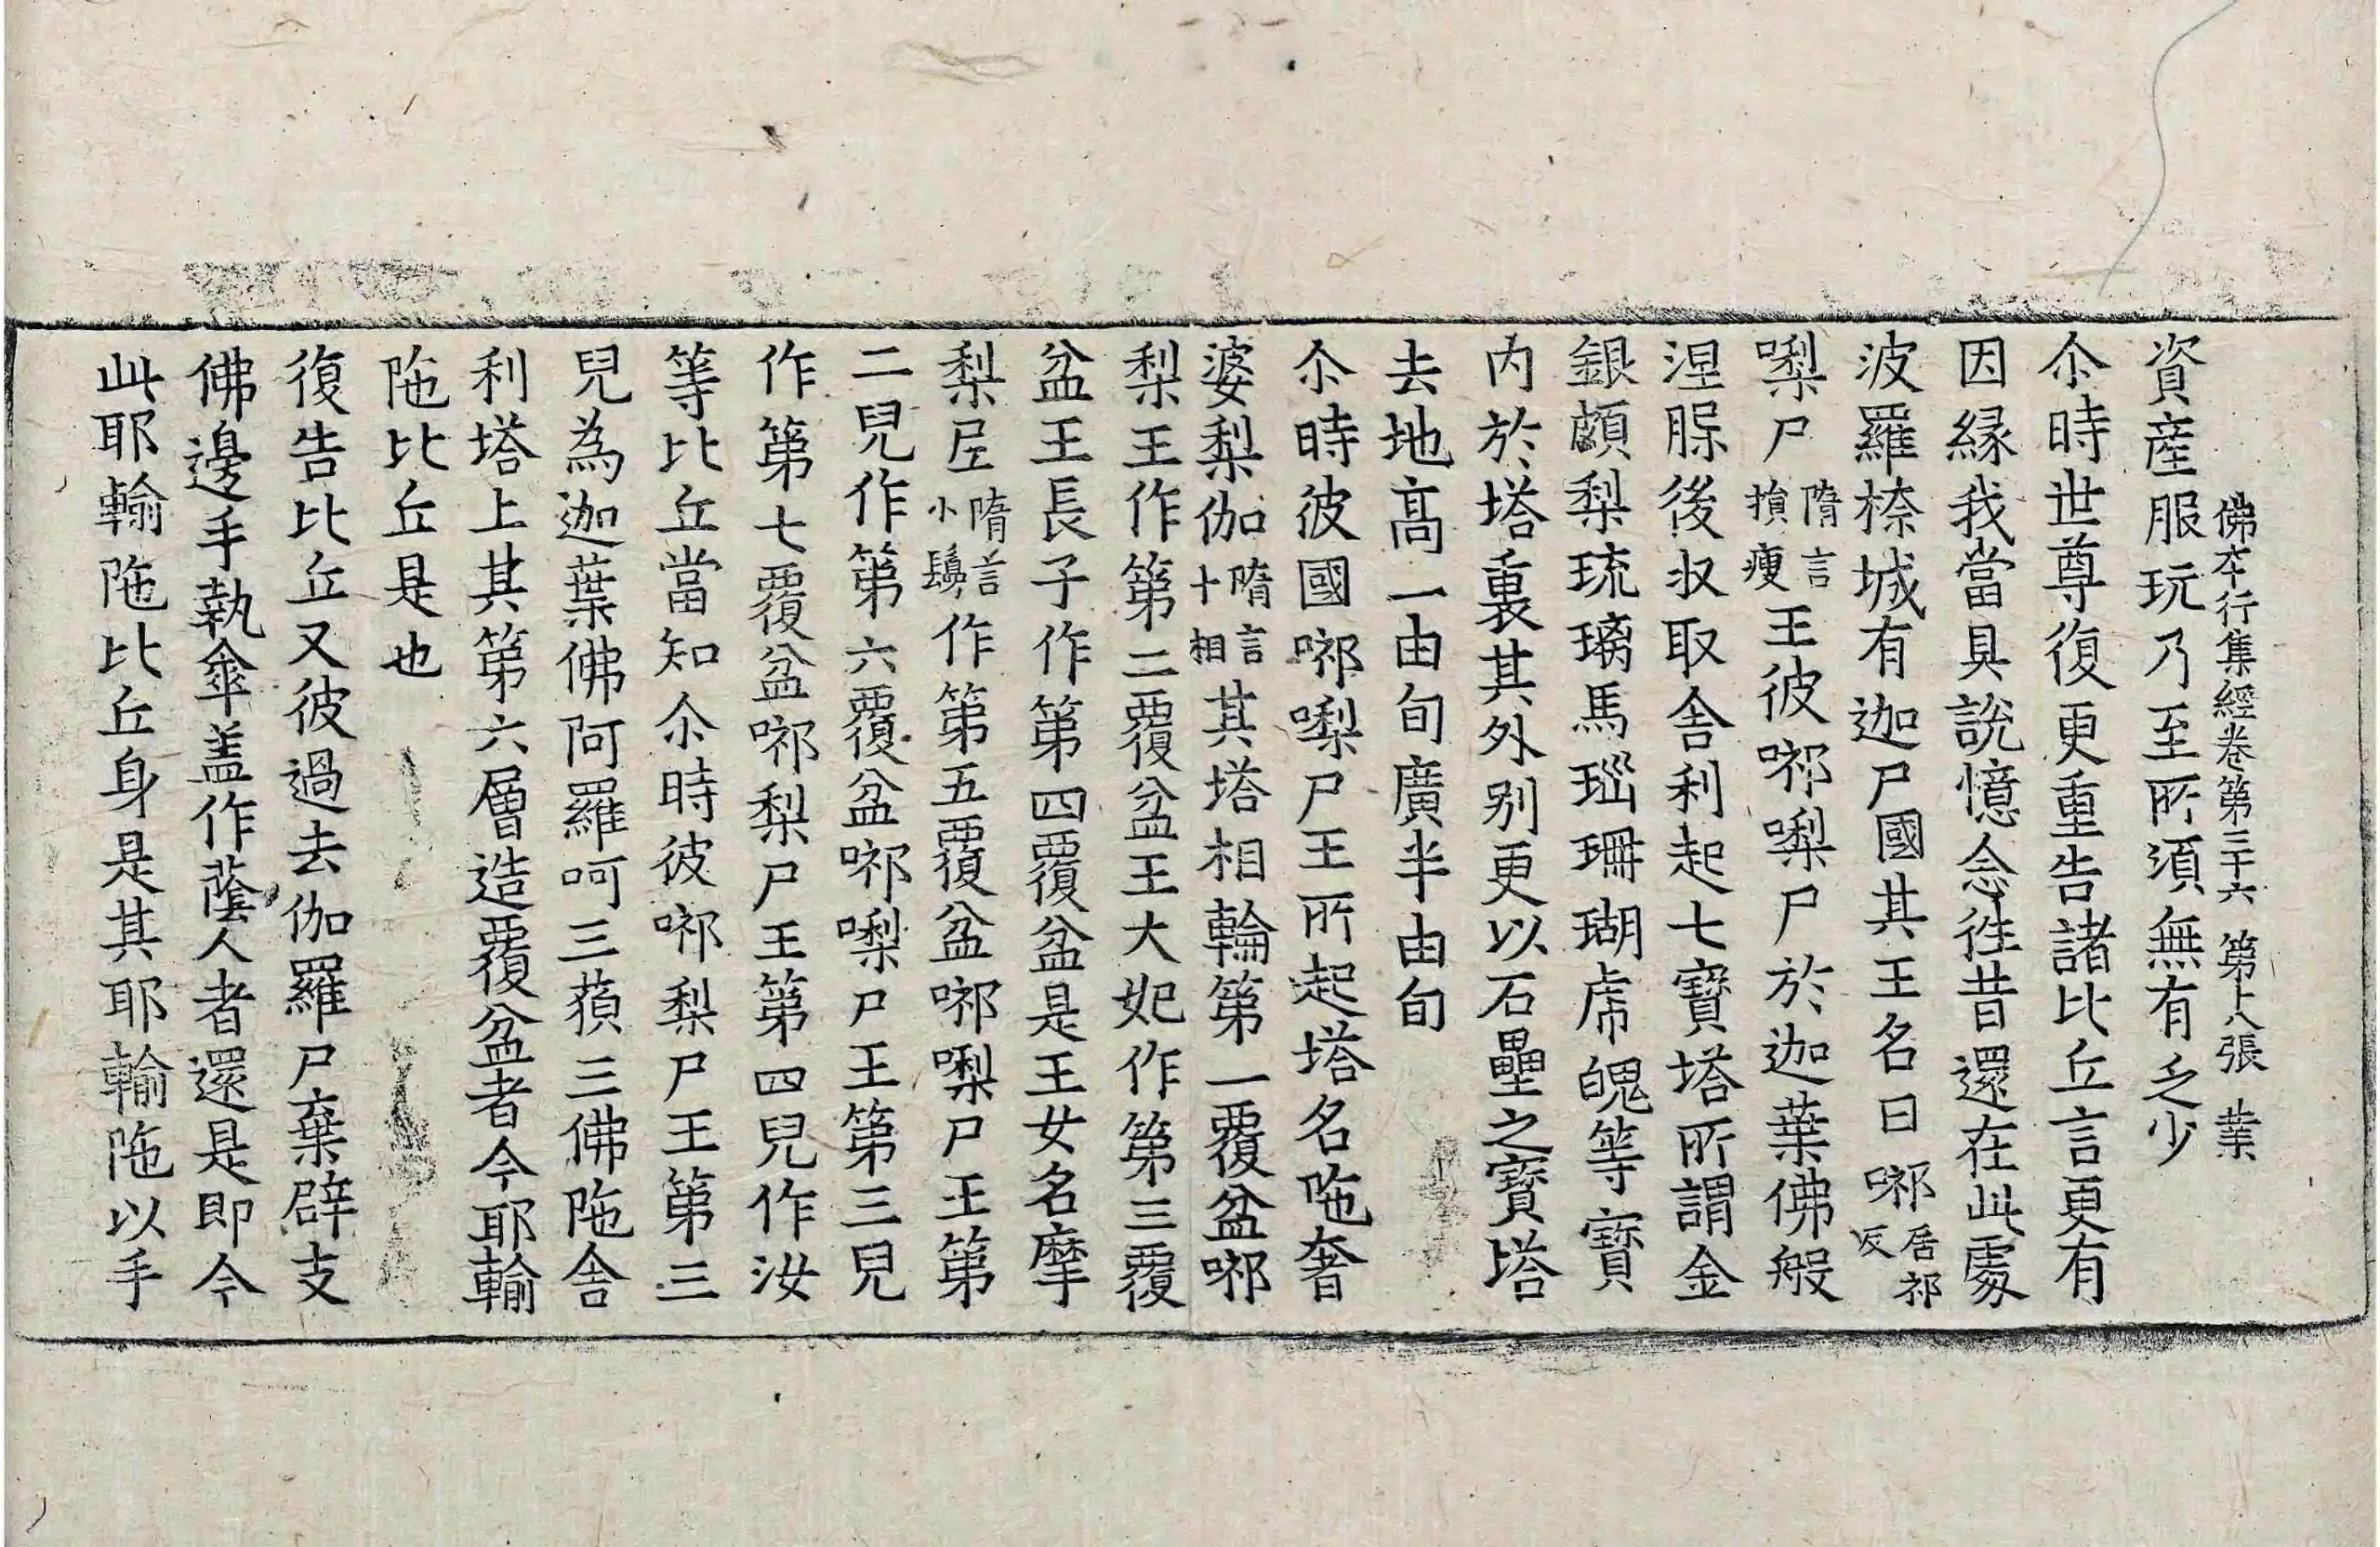 佛本行集經卷第三十六 第十八張 業
資産服玩乃至所須無有乏少
尒時世尊復更重告諸比丘言更有
因縁我當具說憶念徃昔還在此處
波羅㮈城有迦尸國其王名曰㖿居祁反
㗚尸隋言損瘦王彼㖿㗚尸於迦葉佛般
涅脲後収取舍利起七寶塔所謂金
銀頗梨琉璃馬瑙珊瑚虎魄等寶
内於塔裏其外别更以石壘之寶塔
去地高一由旬廣半由旬
尒時彼國㖿㗚尸王所起塔名陁奢
婆梨伽隋言十相其塔相輪第一覆盆㖿
梨王作第二覆盆王大妃作第三覆
盆王長子作第四覆盆是王女名摩
梨𡰱隋言小鬘作第五覆盆㖿㗚尸王第
二兒作第六覆盆㖿㗚尸王第三兒
作第七覆盆㖿梨尸王第四兒作汝
等比丘當知尒時彼㖿梨尸王第三
兒為迦葉佛阿羅呵三藐三佛陁舍
利塔上其第六層造覆盆者今耶輸
陁比丘是也
復告比丘又彼過去伽羅尸棄辟支
佛邊手執傘盖作蔭人者還是即今
此耶輸陁比丘身是其耶輸陁以手